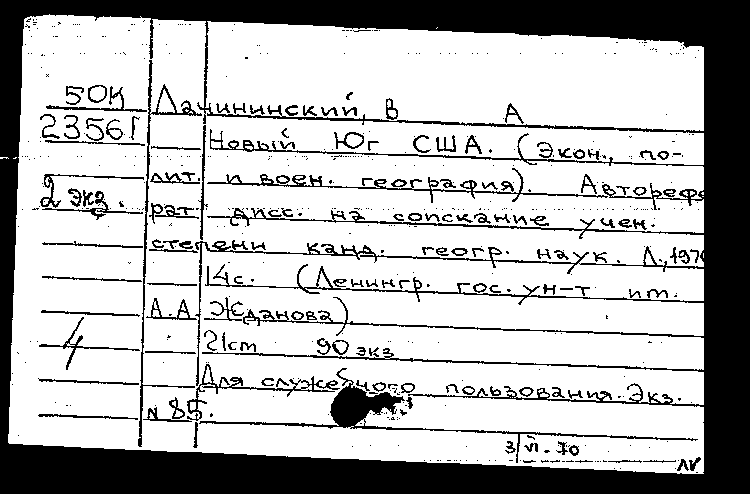 50К Лачининский, В А
23561 Новый Юг США. (Экон., по-
лит. и воен. география). Авторефе
2 экз. рат дисс. на соискание учен.
степени канд. геогр. наук. Л., 1970
14с. (Ленингр. гос. ун-т им.
А.А. Жданова)
4 21cm 90 экз
Для служебного пользования. Экз.
N 85.
3/VI-70